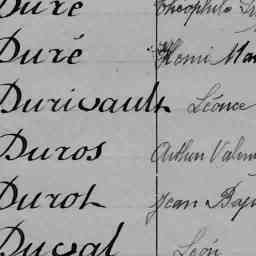 Duré Théophile
Duré Henri
Durivault Léonce
Duros Arthur
Durot Jean
Duval Léon